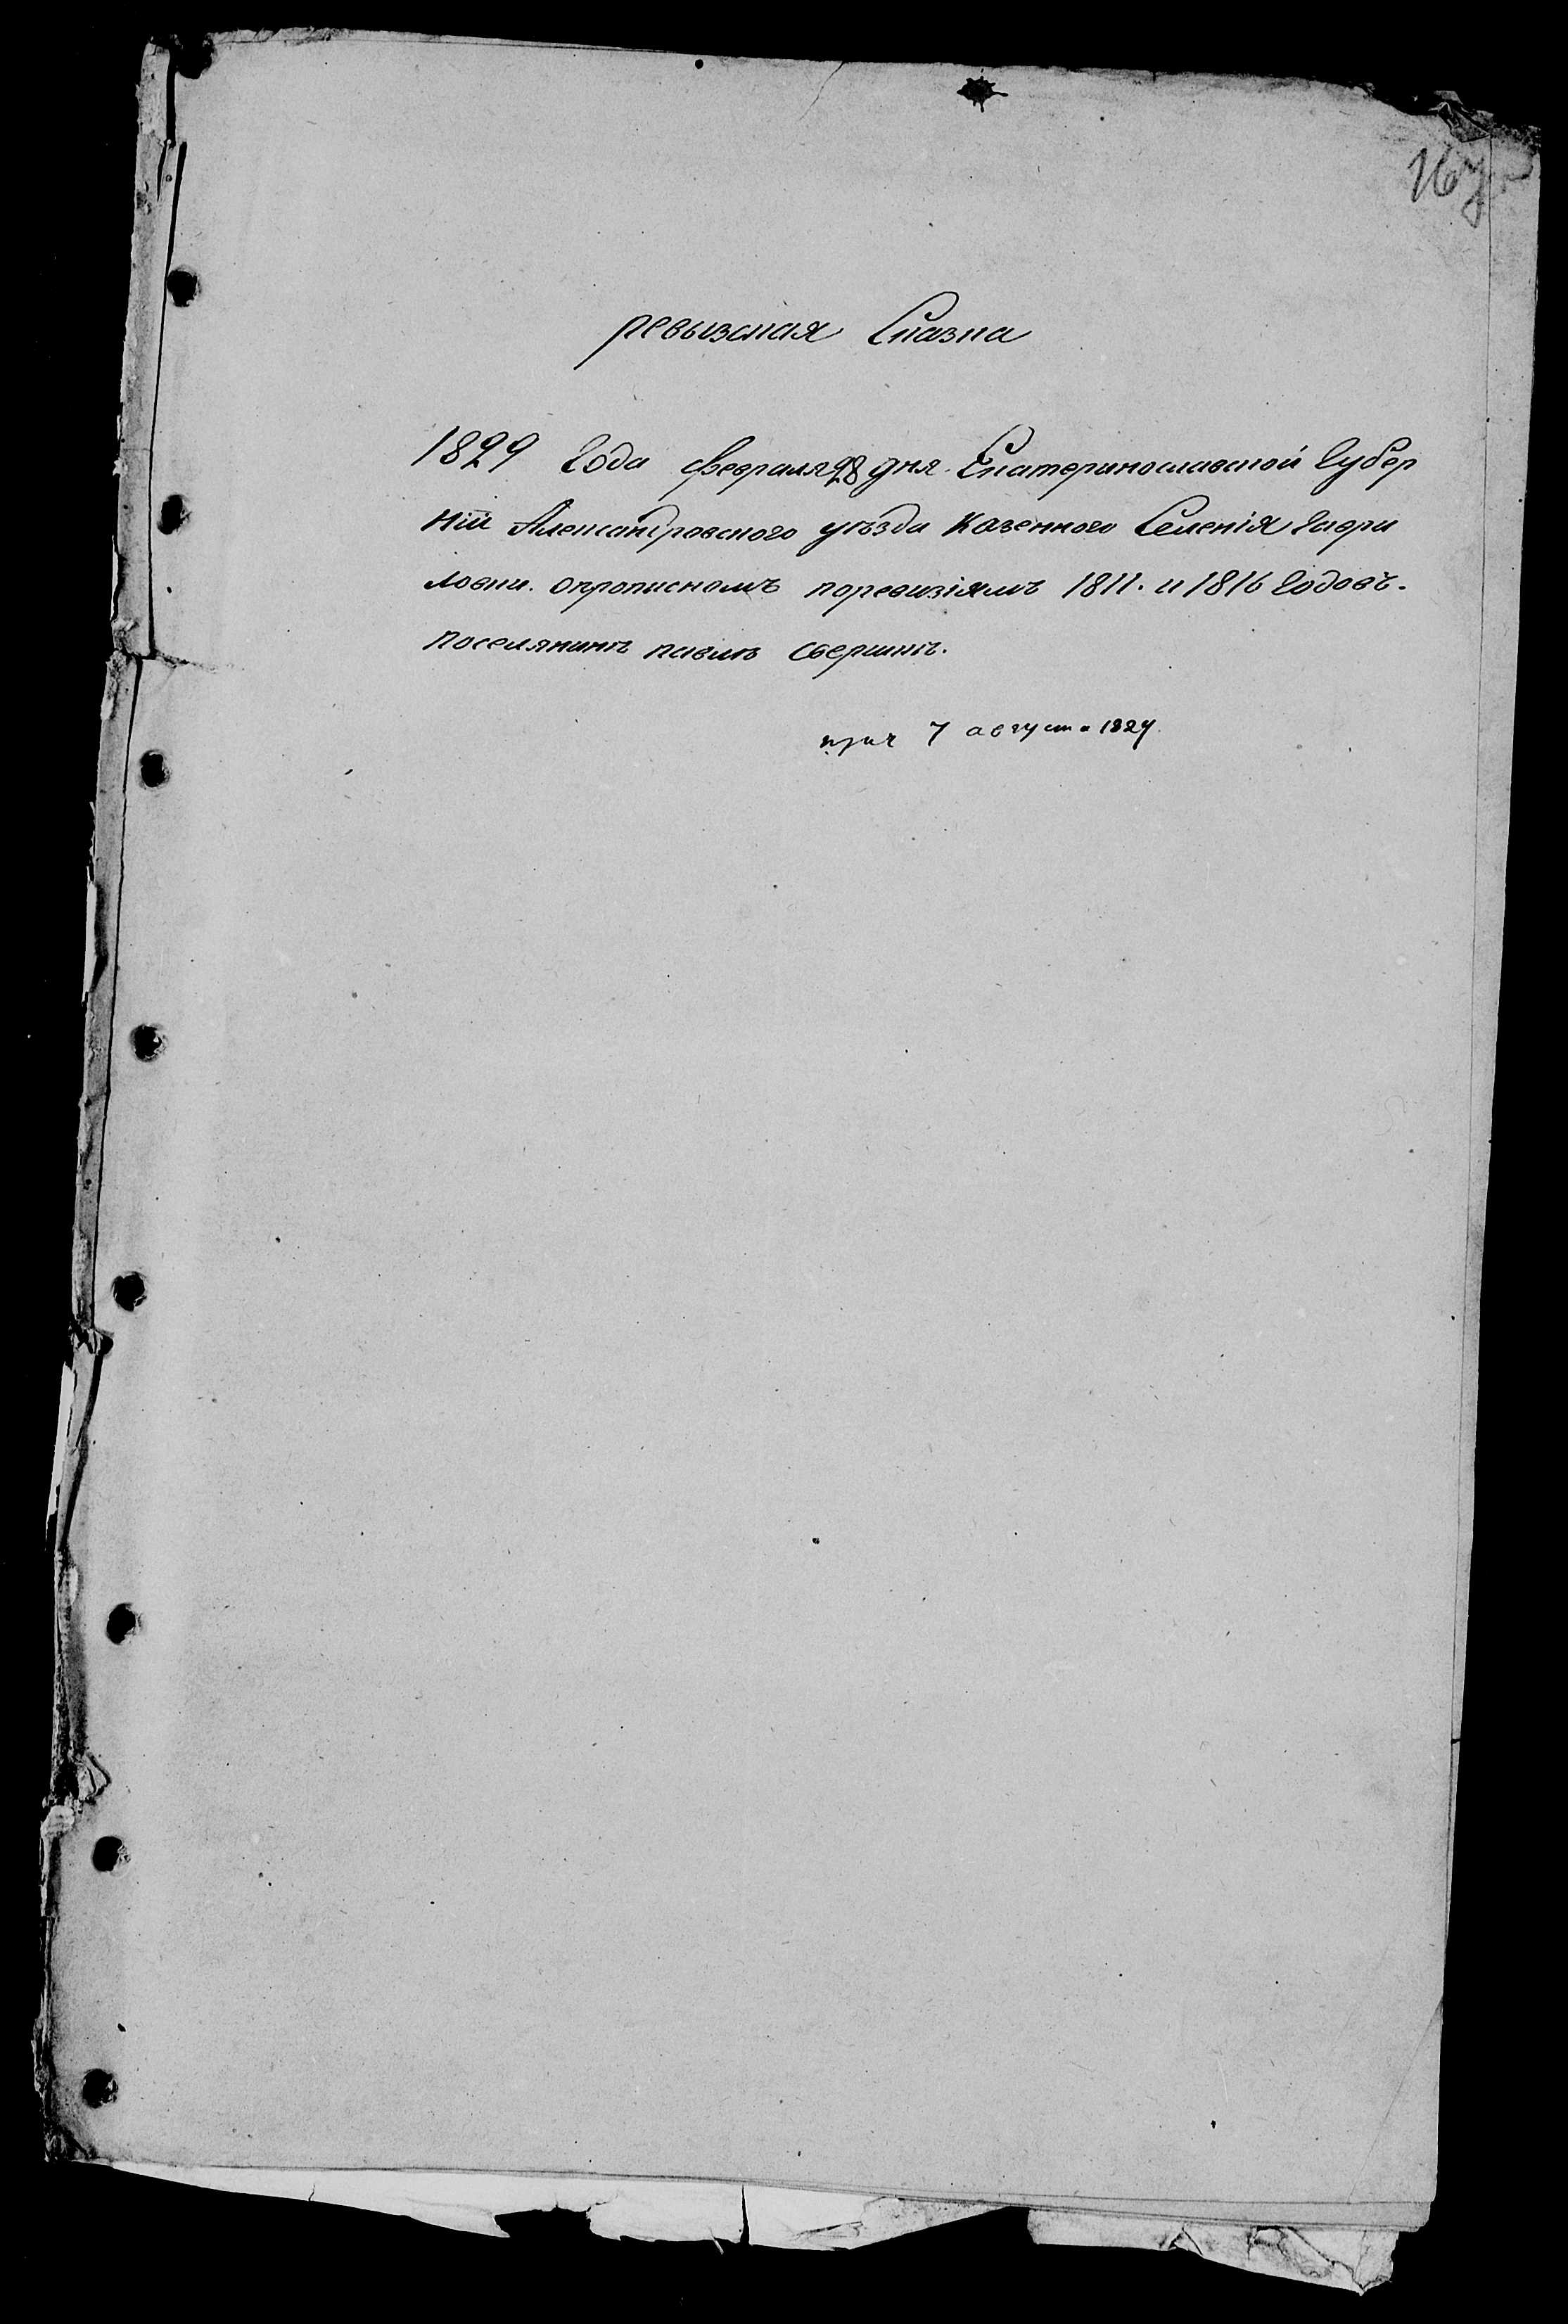 167
ревызская Сказка
1829 Года февраля 28 дня. Екатеринославской Губер
нiи Александровского уѣзда Казенного Селенiя Гаври
ловки. опрописномъ поревизiямъ 1811. и 1816 Годовъ.
поселянинѣ павлѣ
7 августа 1829